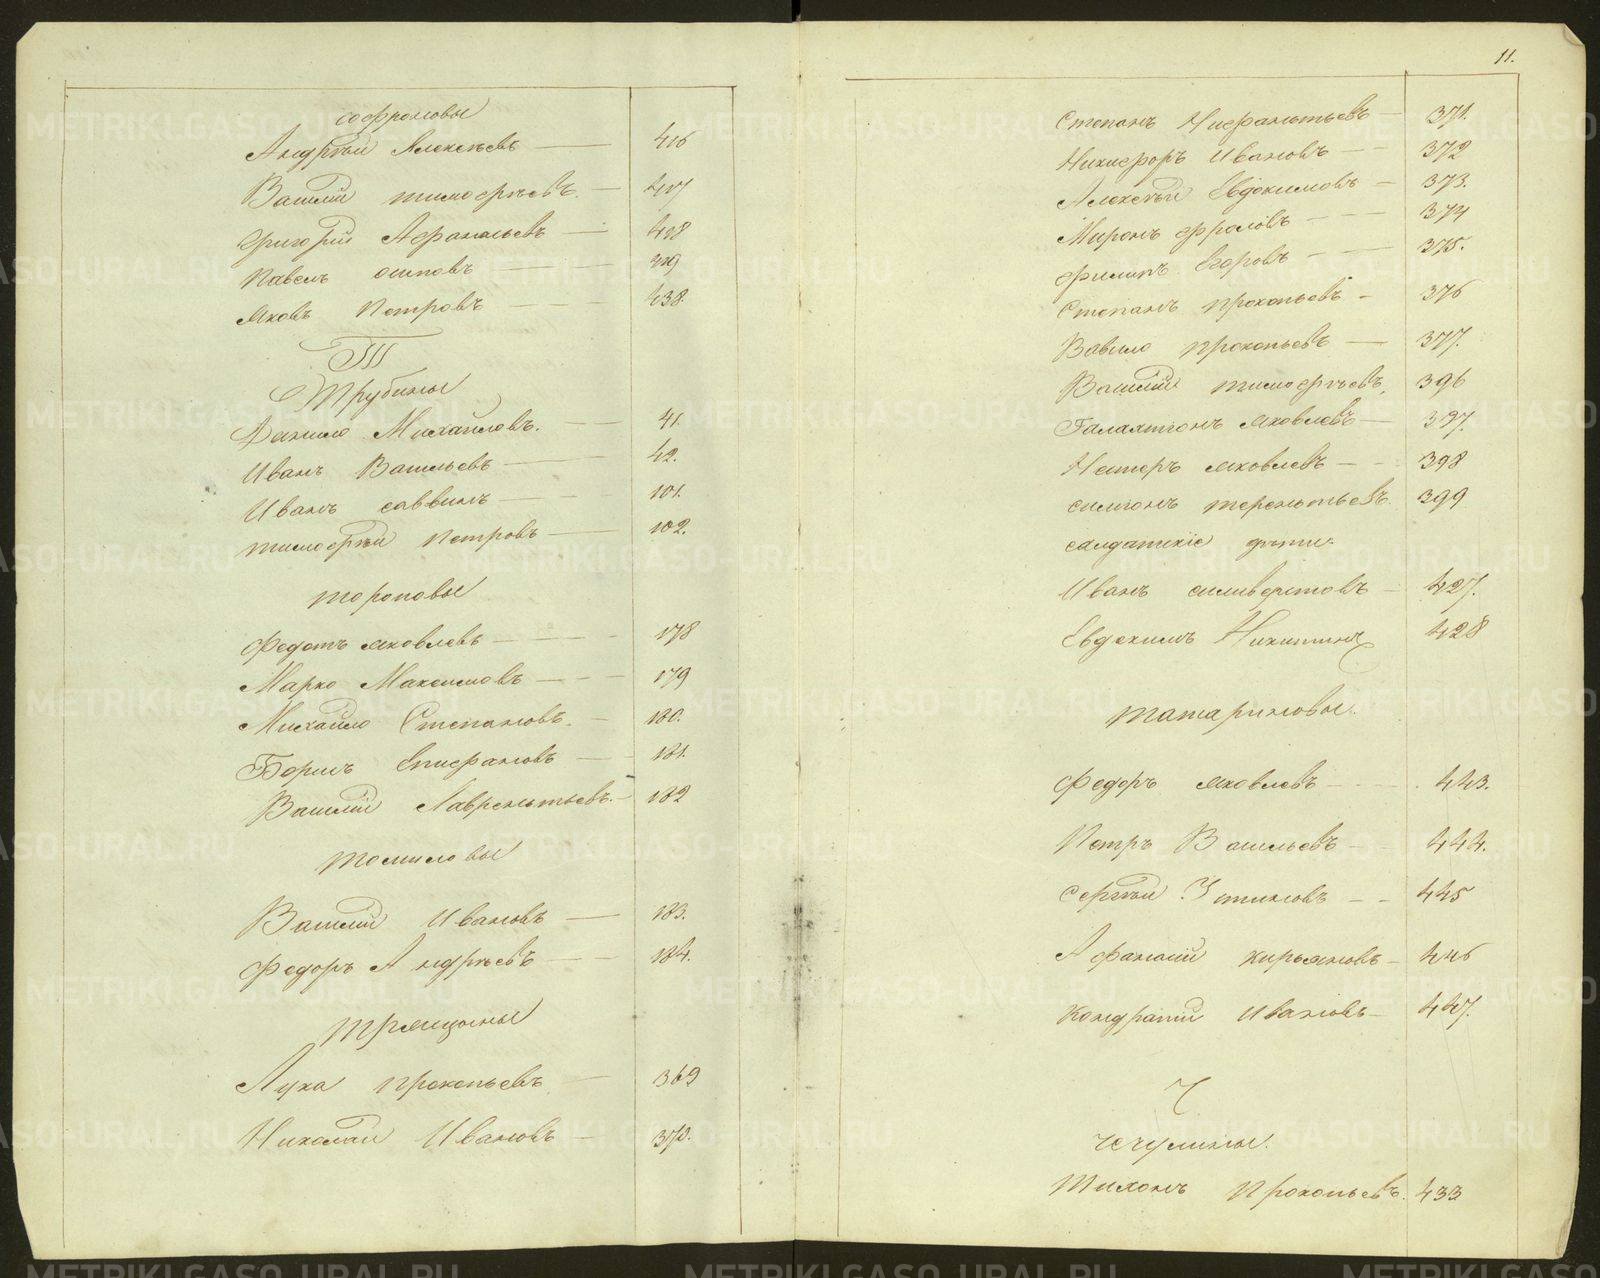 Софроновы
Андрей Алексеевъ — 416
Василий Тимофеевъ — 417
Григорий Афанасьевъ — 418
Павелъ Осиповъ — 419
Яковъ Петровъ — 438
Т
Трубины
Данило Михайловъ — 41.
Иванъ Васильевъ — 42.
Иванъ Саввинъ — 101.
Тимофей Петровъ — 102.
Тороповы
Федотъ Яковлевъ — 178
Марко Максимовъ — 179
Михайло Степановъ — 180.
Борисъ Епифановъ — 181.
Василий Лаврентьевъ — 182
Томиловы
Василий Ивановъ — 183.
Федоръ Андреевъ — 184.
Трясцыны
Лука Прокопьевъ — 369
Николай Ивановъ — 370.
11.
Степанъ Нифантьевъ — 371.
Никифоръ Ивановъ — 372
Алексей Евдокимовъ — 373.
Миронъ Фроловъ — 374
Филипъ Егоровъ — 375.
Степанъ Прокопьевъ — 376
Вавило Прокопьевъ — 377.
Василий Тимофеевъ 396
Галактионъ Яковлевъ — 397.
Нестеръ Яковлевъ — 398
Симионъ Терентьевъ 399
Салдатскіе дѣти
Иванъ Силиверстовъ — 427.
Евдокимъ Никитинъ 428
Татариновы.
Федоръ Яковлевъ — 443.
Петръ Васильевъ — 444.
Сергей Устиновъ — 445
Афанасий Кирьяновъ — 446
Кондратий Ивановъ — 447.
Ч
Чечулины.
Тихонъ Прокопьевъ. 433
METRIKI.GASO-URAL.RU